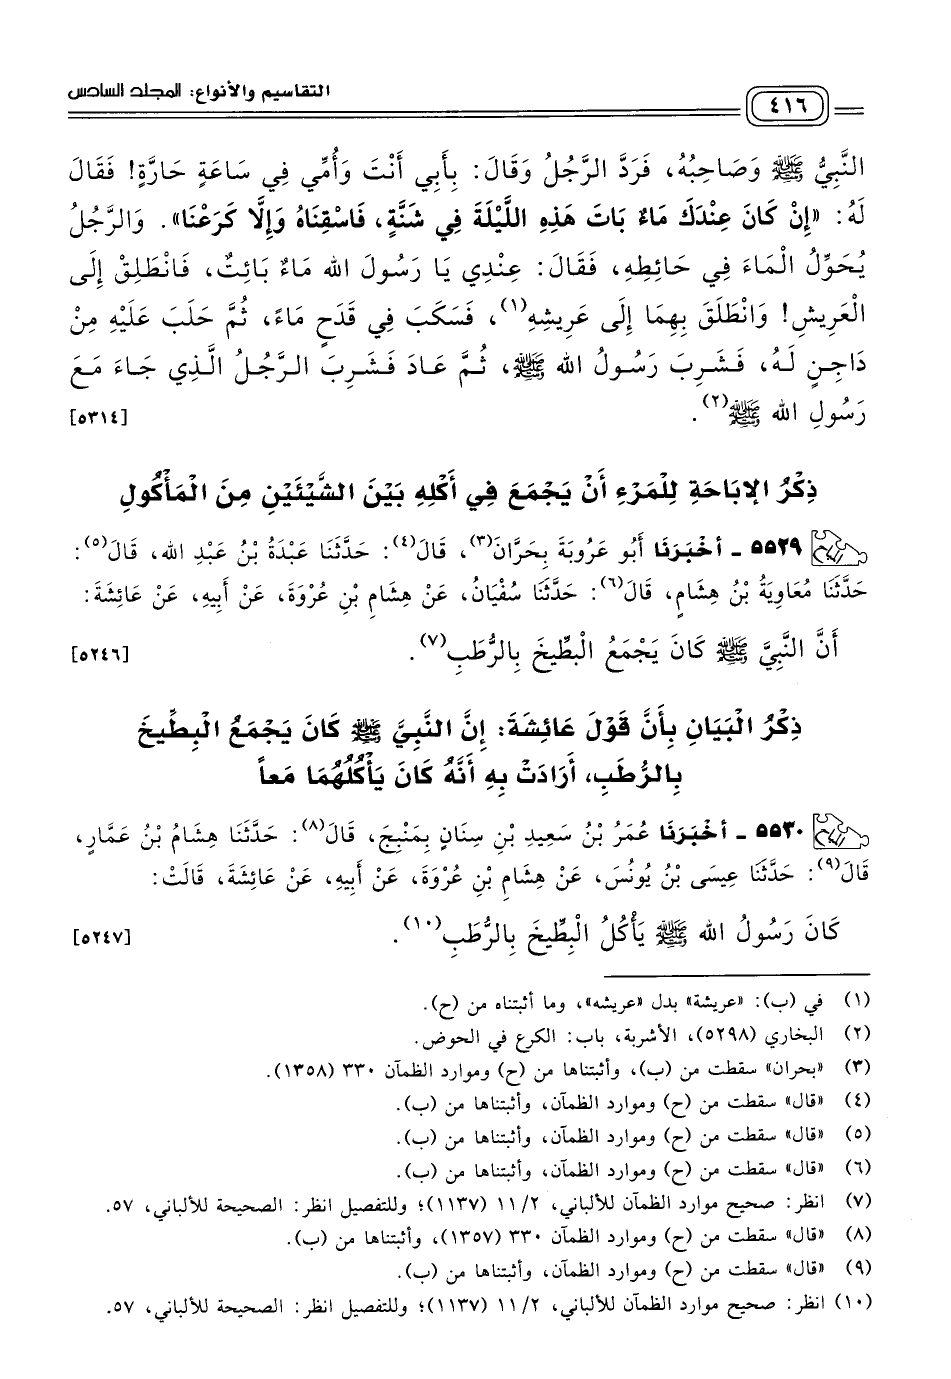 التقاسيم والأنواع: المجلد السادس
٤١٦
النَّبِيُّ ﷺ وَصَاحِبُهُ، فَرَدَّ الرَّجُلُ وَقَالَ: بِأَبِي أَنْتَ وَأُمِّي فِي سَاعَةٍ حَارَّةٍ! فَقَالَ
لَهُ: «إِنْ كَانَ عِنْدَكَ مَاءٌ بَاتَ هَذِهِ اللَّيْلَةَ فِي شَنَّةٍ، فَاسْقِنَاهُ وَإِلَّا كَرَعْنَا». وَالرَّجُلُ
يُحَوِّلُ الْمَاءَ فِي حَائِطِهِ، فَقَالَ: عِنْدِي يَا رَسُولَ الله مَاءٌ بَائِتٌ، فَانْطَلِقْ إِلَى
الْعَرِيشِ! وَانْطَلَقَ بِهِمَا إِلَى عَرِيشِهِ(١)، فَسَكَبَ فِي قَدَحٍ مَاءً، ثُمَّ حَلَبَ عَلَيْهِ مِنْ
دَاجِنٍ لَهُ، فَشَرِبَ رَسُولُ الله ﷺ، ثُمَّ عَادَ فَشَرِبَ الرَّجُلُ الَّذِي جَاءَ مَعَ
رَسُولِ الله ﷺ(٢). [٥٣١٤]
ذِكْرُ الإبَاحَةِ لِلْمَرْءِ أَنْ يَجْمَعَ فِي أَكْلِهِ بَيْنَ الشَّيْئَيْنِ مِنَ الْمَأْكُولِ
٥٥٢٩ - أخْبَرَنَا أَبُو عَرُوبَةَ بِحَرَّانَ(٣)، قَالَ(٤): حَدَّثَنَا عَبْدَةُ بْنُ عَبْدِ الله، قَالَ(٥):
حَدَّثَنَا مُعَاوِيَةُ بْنُ هِشَامٍ، قَالَ(٦): حَدَّثَنَا سُفْيَانُ، عَنْ هِشَامِ بْنِ عُرْوَةَ، عَنْ أَبِيهِ، عَنْ عَائِشَةَ:
أَنَّ النَّبِيَّ ﷺ كَانَ يَجْمَعُ الْبِطِّيخَ بِالرُّطَبِ(٧). [٥٢٤٦]
ذِكْرُ الْبَيَانِ بِأَنَّ قَوْلَ عَائِشَةَ: إِنَّ النَّبِيَّ ﷺ كَانَ يَجْمَعُ الْبِطِّيخَ
بِالرُّطَبِ، أَرَادَتْ بِهِ أَنَّهُ كَانَ يَأْكُلُهُمَا مَعاً
٥٥٣٠ - أخْبَرَنَا عُمَرُ بْنُ سَعِيدِ بْنِ سِنَانٍ بِمَنْبِجَ، قَالَ(٨): حَدَّثَنَا هِشَامُ بْنُ عَمَّارٍ،
قَالَ(٩): حَدَّثَنَا عِيسَى بْنُ يُونُسَ، عَنْ هِشَامِ بْنِ عُرْوَةَ، عَنْ أَبِيهِ، عَنْ عَائِشَةَ، قَالَتْ:
كَانَ رَسُولُ الله ﷺ يَأْكُلُ الْبِطِّيخَ بِالرُّطَبِ(١٠). [٥٢٤٧]
(١) في (ب): «عريشة» بدل «عريشه»، وما أثبتناه من (ح).
(٢) البخاري (٥٢٩٨)، الأشربة، باب: الكرع في الحوض.
(٣) «بحران» سقطت من (ب)، وأثبتناها من (ح) وموارد الظمآن ٣٣٠ (١٣٥٨).
(٤) «قال» سقطت من (ح) وموارد الظمآن، وأثبتناها من (ب).
(٥) «قال» سقطت من (ح) وموارد الظمآن، وأثبتناها من (ب).
(٦) «قال» سقطت من (ح) وموارد الظمآن، وأثبتناها من (ب).
(٧) انظر: صحيح موارد الظمآن للألباني، ٢/ ١١ (١١٣٧)؛ وللتفصيل انظر: الصحيحة للألباني، ٥٧.
(٨) «قال» سقطت من (ح) وموارد الظمآن ٣٣٠ (١٣٥٧)، وأثبتناها من (ب).
(٩) «قال» سقطت من (ح) وموارد الظمآن، وأثبتناها من (ب).
(١٠) انظر: صحيح موارد الظمآن للألباني، ٢/ ١١ (١١٣٧)؛ وللتفصيل انظر: الصحيحة للألباني، ٥٧.